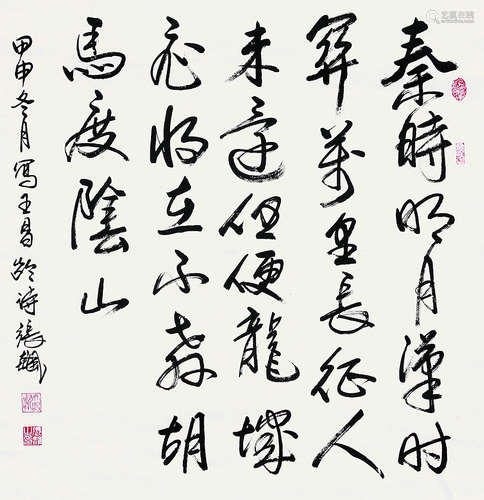 秦時明月漢时
關萬里長征人
未還但使龍城
飛将在不教胡
馬度陰山
甲申冬月寫王昌齡詩張